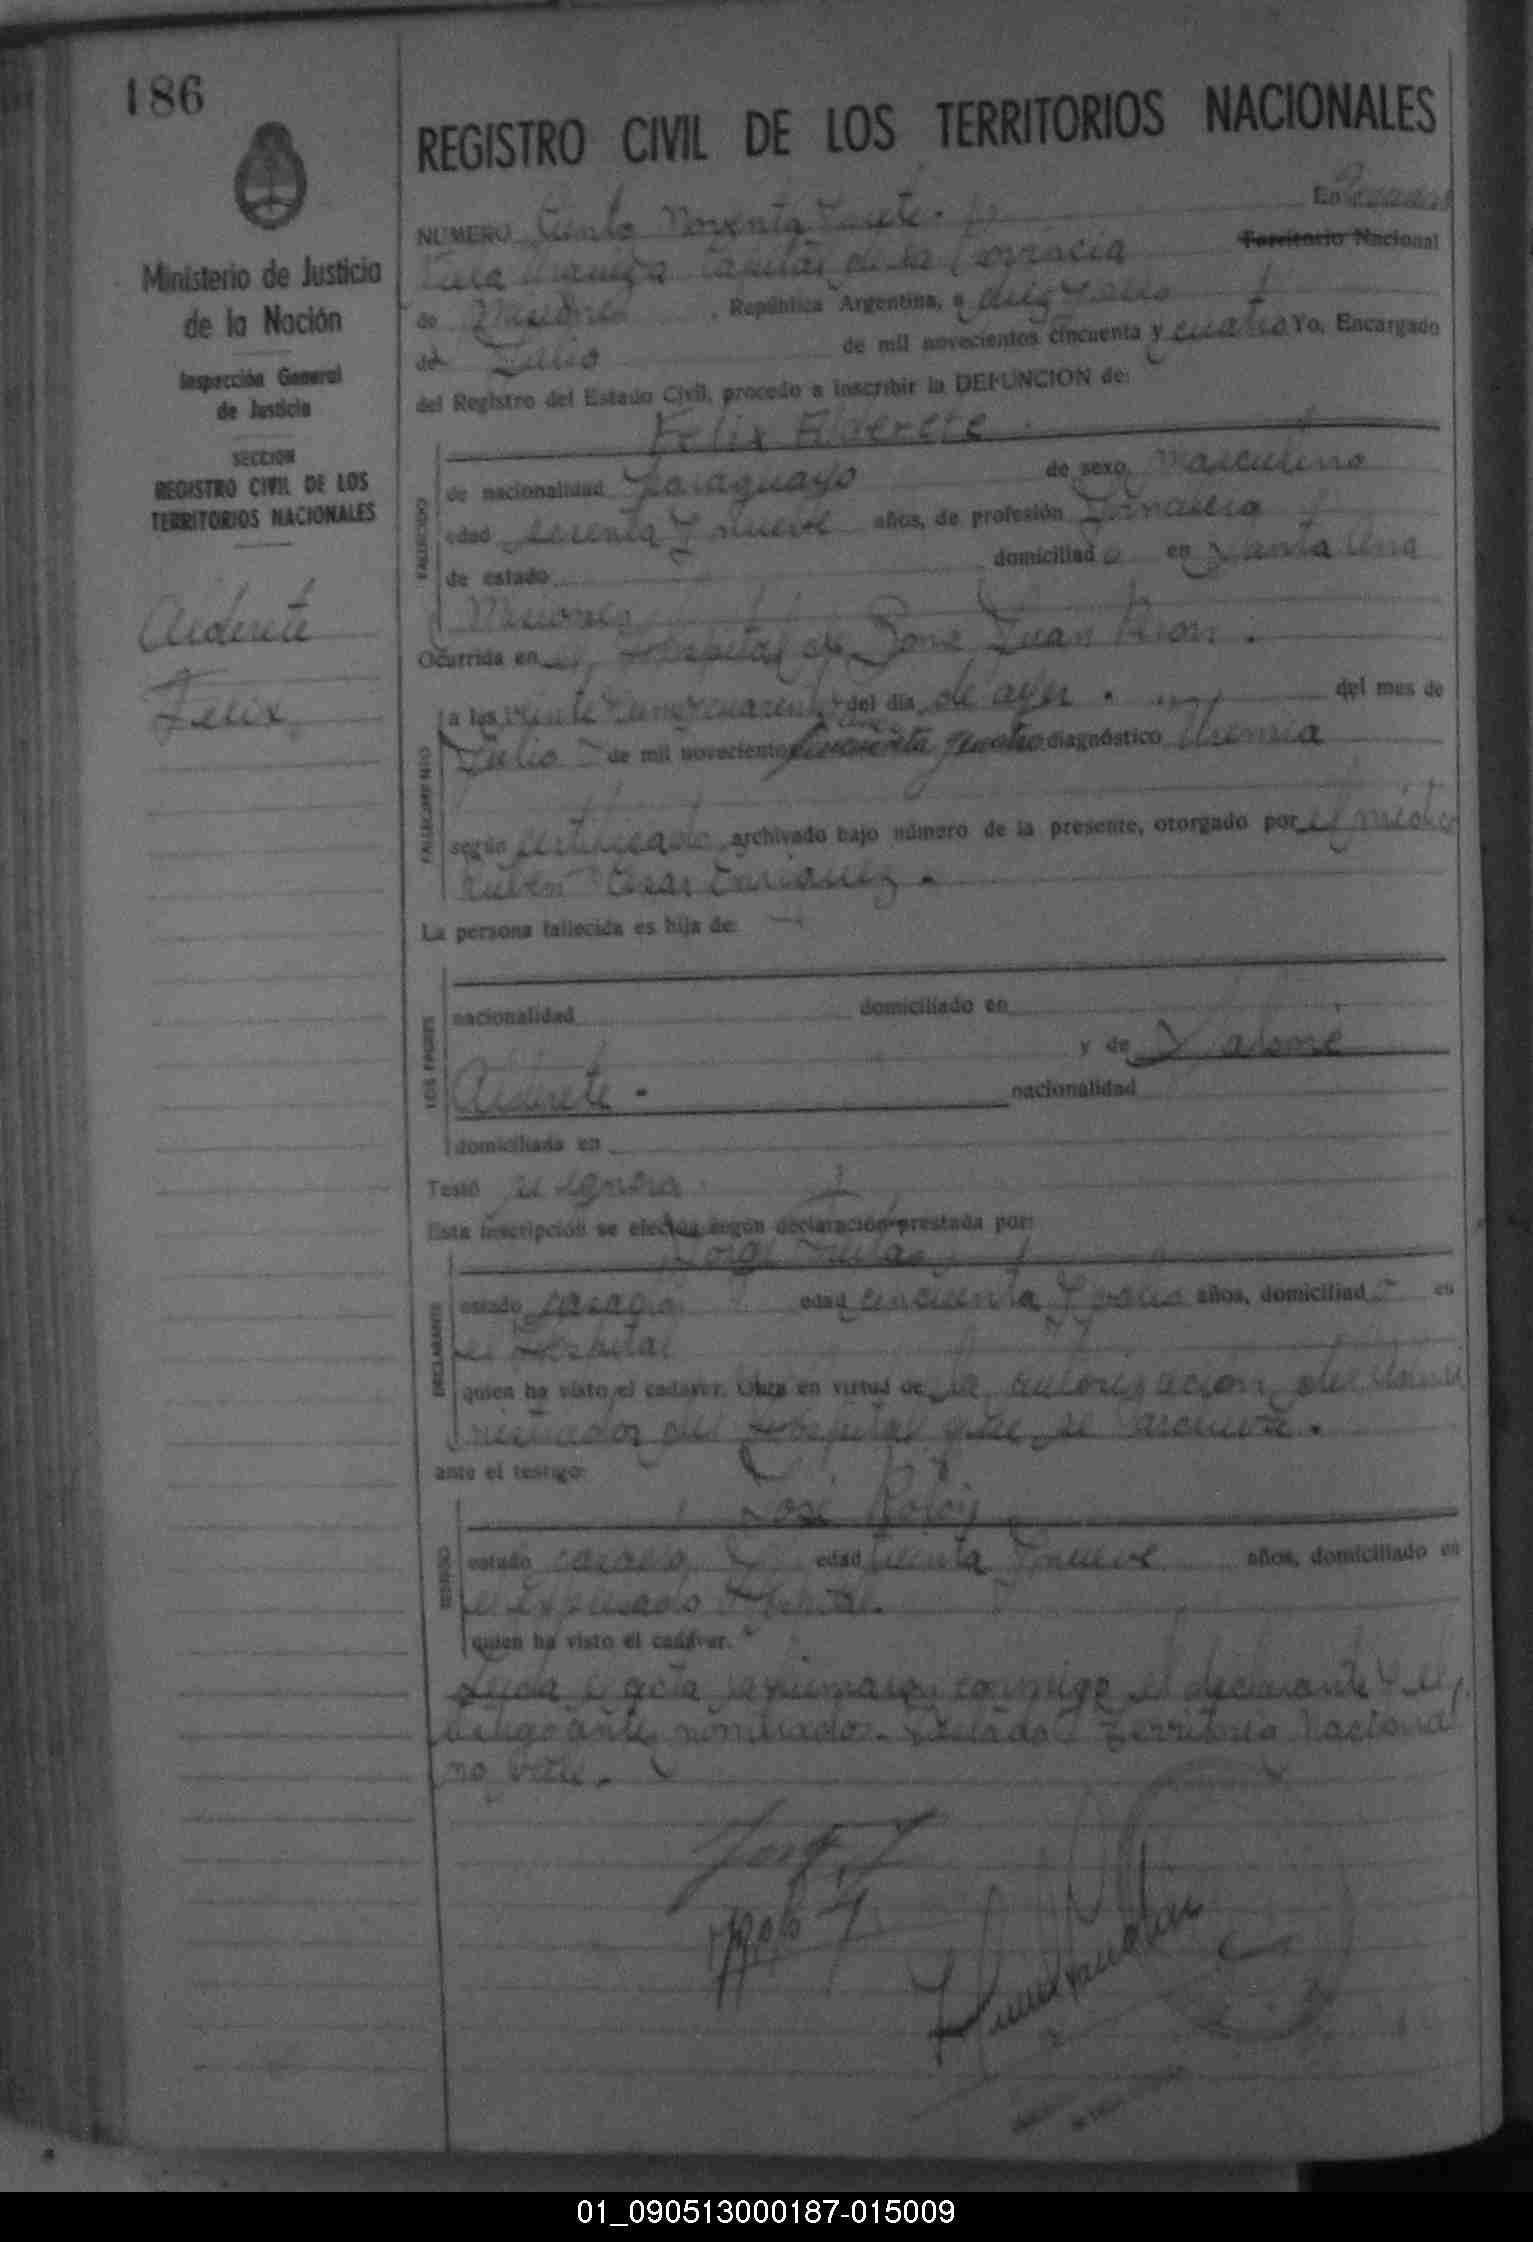 186
REGISTRO CIVIL DE LOS TERRITORIOS NACIONALES
Ministerio de Justicia
de la Nación
Inspección General
de Justicia
SECCION
REGISTRO CIVIL DE LOS
TERRITORIOS NACIONALES
Alderete
Felix
En Posadas
NUMERO Ciento Noventa y siete.
Capital de la Provincia Territorio Nacional
de Misiones, República Argentina, a
de Julio de mil novecientos cincuenta y cuatro Yo, Encargado
del Registro del Estado Civil, procedo a inscribir la DEFUNCION de:
Felix Alderete
FALLECIDO
de nacionalidad paraguayo de sexo Masculino
edad y nueve años, de profesión Jornalero
de estado domiciliado en Santa Ana
Misiones
Ocurrida en el Hospital de Perón.
FALLECIMIENTO
a las veinte y una y cuarenta del día de ayer. del mes de
Julio de mil novecientos cincuenta y cuatro diagnóstico Uremia
según certificado archivado bajo número de la presente, otorgado por el médico
Ruben Cesar Enriquez.
La persona fallecida es hija de:
LOS PADRES
nacionalidad domiciliado en
y de Salomé
Alderete - nacionalidad
domiciliada en
Testó se ignora
Esta inscripción se efectúa según declaración prestada por:
Jorge
DECLARANTE
estado casado edad cincuenta y años, domiciliado en
el Hospital
quien ha visto el cadaver. Obra en virtud de la autorización del Admi
nistrador del Hospital que se archiva.
ante el testigo:
José
TESTIGO
estado casado edad treinta y nueve años, domiciliado en
el expresado Hospital.
quien ha visto el cadáver.
Leída el acta la firmaron conmigo el declarante y el
testigo antes nombrados. Testado Territorio Nacional
no vale.
01_090513000187-015009